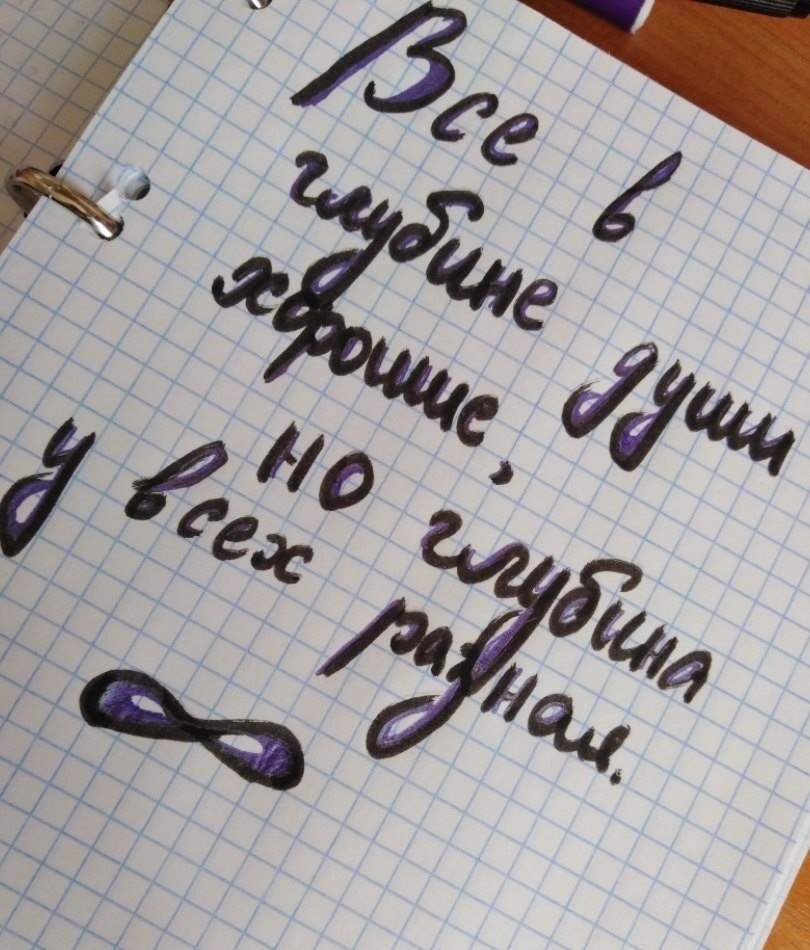 Все в
глубине души
хорошие,
но глубина
у всех разная.